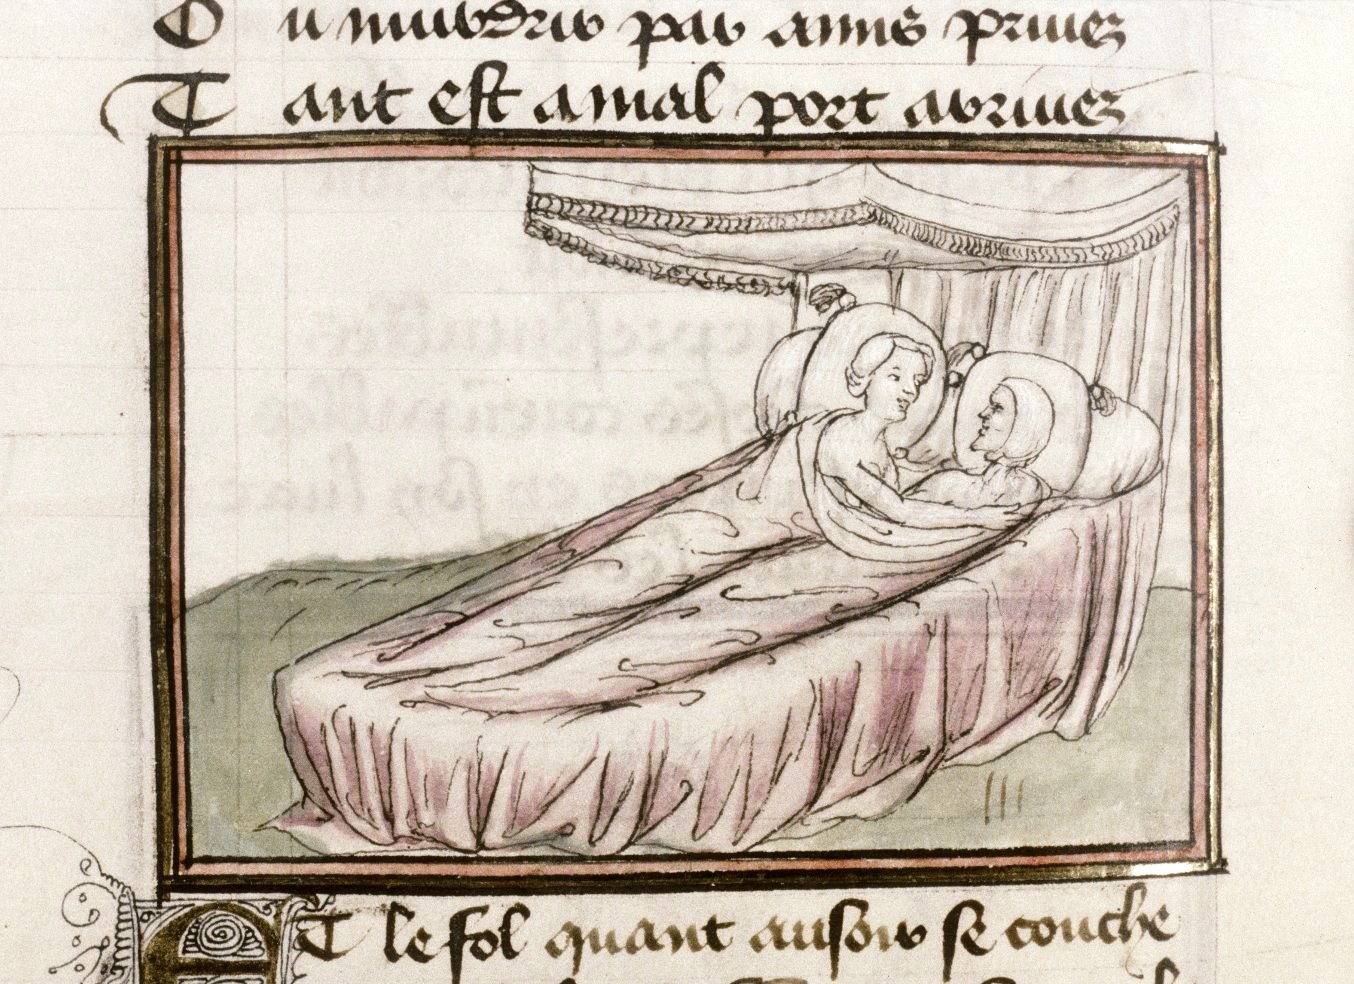 O u par amis priuez
T ant est a mal port arriuez
ET le fol quant au soir se couche